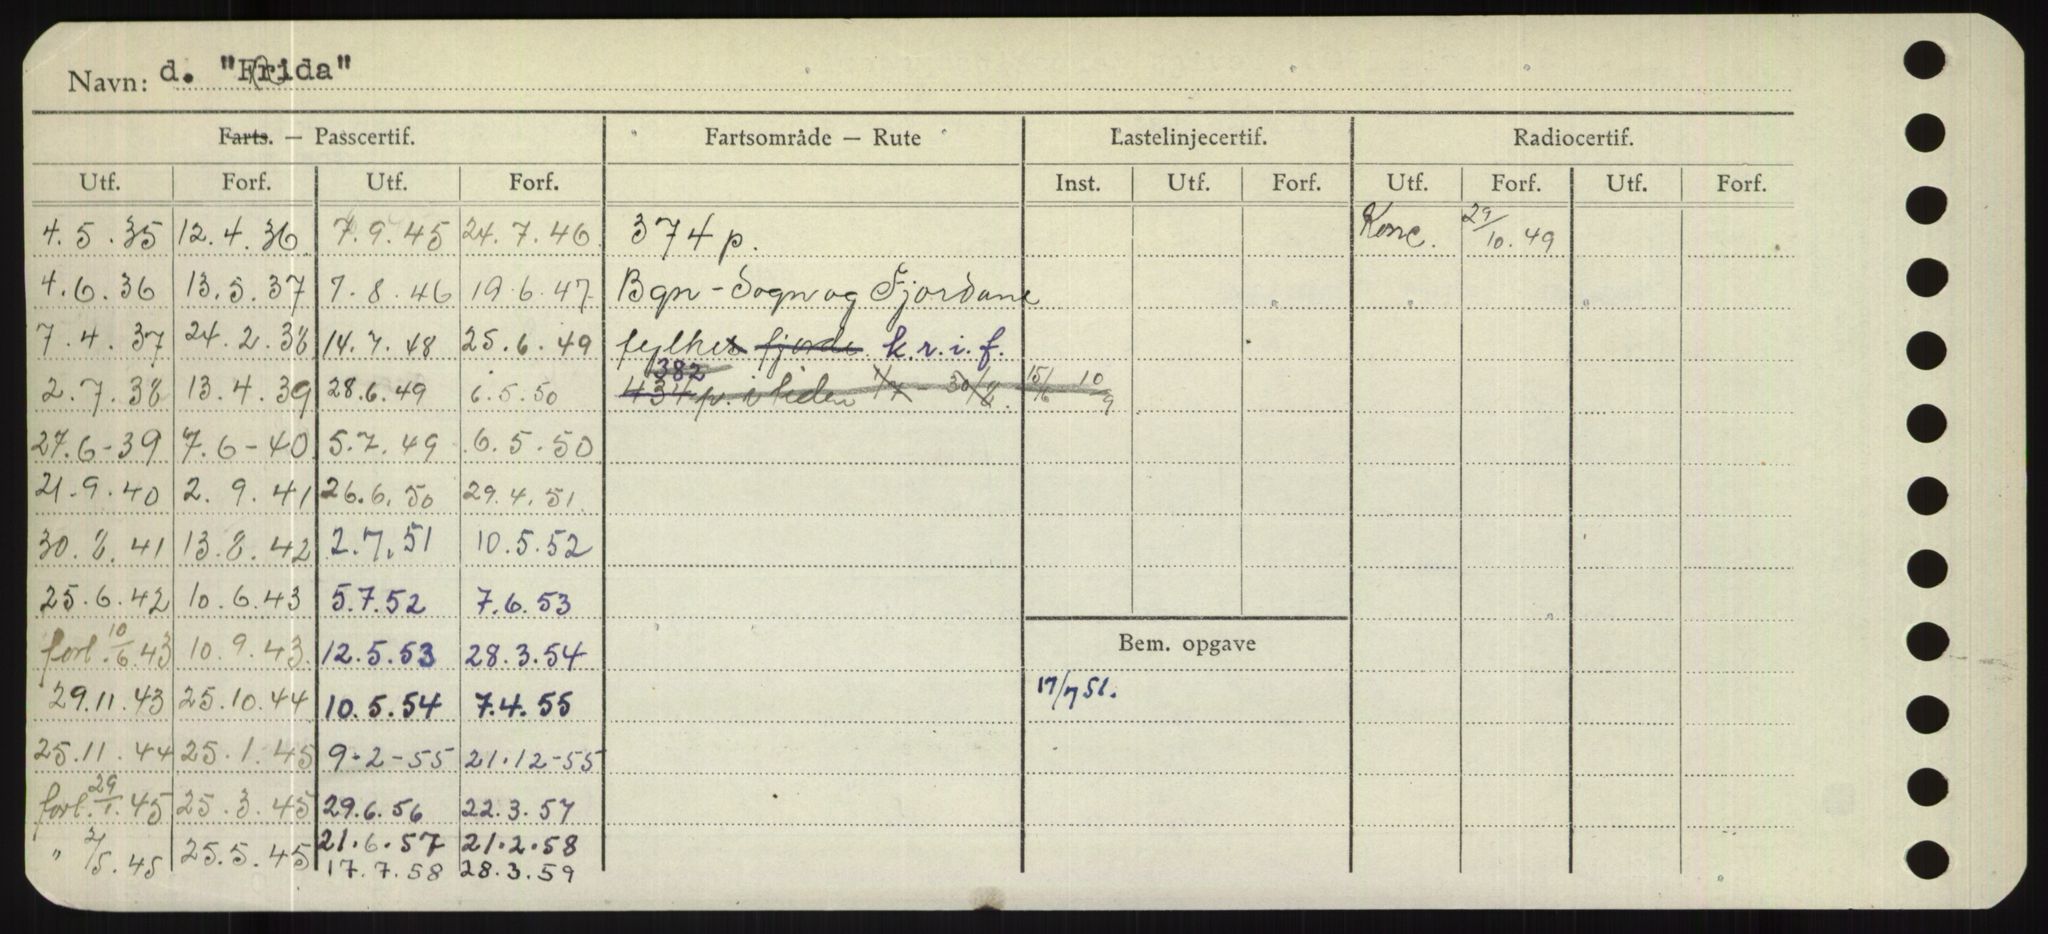 Navn: d. "Frida"
Farts. — Passcertif. Fartsområde — Rute Lastelinjecertif. Radiocertif.
Utf. Forf. Utf. Forf. Inst. Utf. Forf. Utf. Forf. Utf. Forf.
4.5.35 12.4.36 7.9.45 24.7.46 374 p. 29/10.49
4.6.36 13.5.37 7.8.46 19.6.47 Bgn - Sogn og Fjordane
7.4.37 24.2.38 14.7.48 25.6.49 fylkes fjorde k.r.i.f.
382
2.7.38 13.4.39 28.6.49 6.5.50 434 p. i tiden 1/7 - 30/8 15/6 10/9
27.6-39 7.6-40 5.7.49 6.5.50
21.9.40 2.9.41 26.6.50 29.4.51
30.8.41 13.8.42 2.7.51 10.5.52
25.6.42 10.6.43 5.7.52 7.6.53
forl. 10/6.43 10.9.43 12.5.53 28.3.54 Bem. opgave
29.11.43 25.10.44 10.5.54 7.4.55 17/7 51.
25.11.44 25.1.45 9-2-55 21.12-55
forl. 29/1.45 25.3.45 29.6.56 22.3.57
" 2/5.45 25.5.45 21.6.57 21.2.58
17.7.58 28.3.59